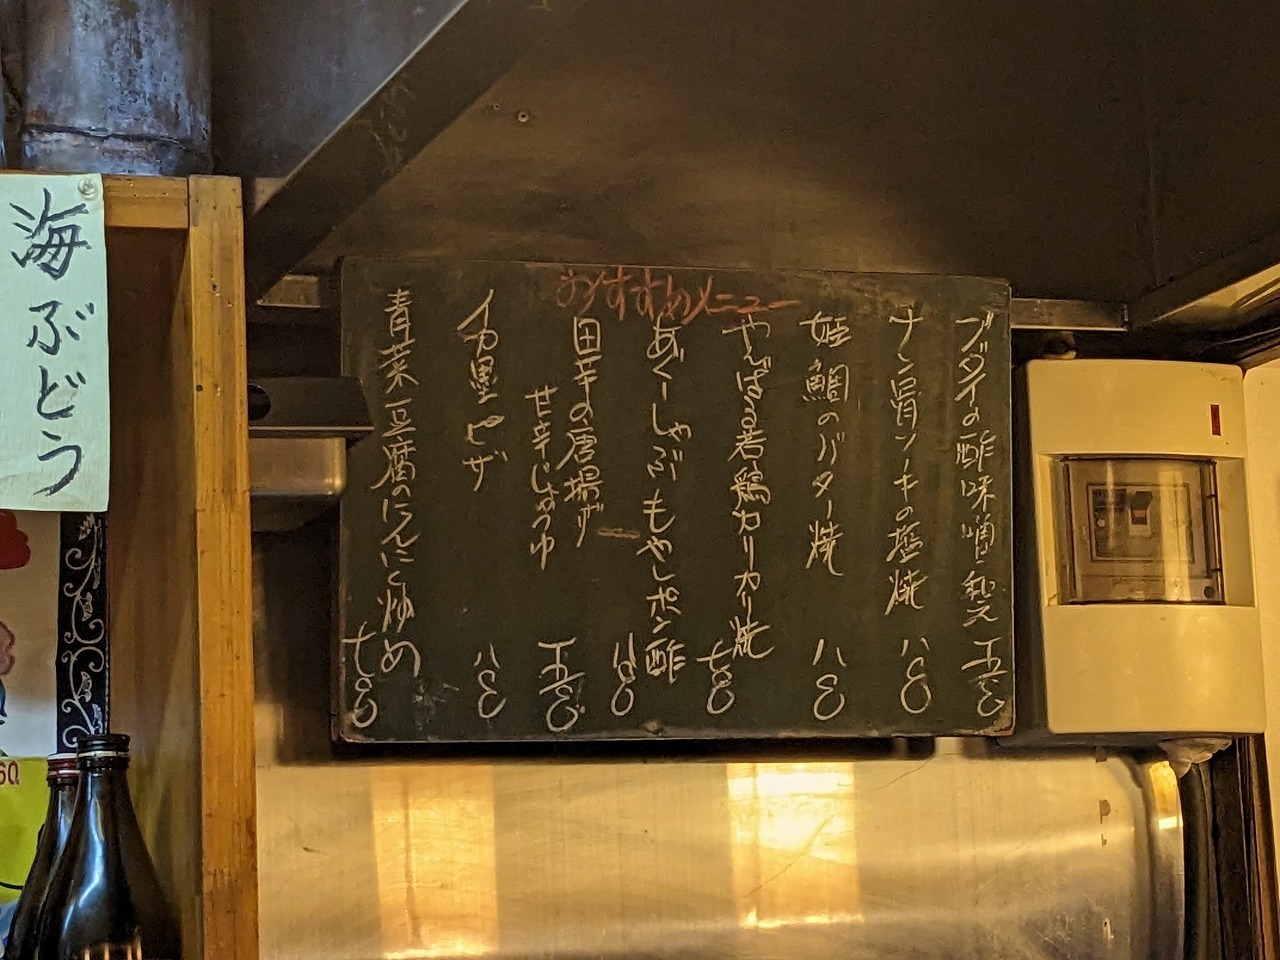 おすすめメニュー
ブダイの酢味噌和え 五五〇
ナン骨ソーキの塩焼 八五〇
姫鯛のバター焼 八五〇
やんばる若鶏カリカリ焼 七五〇
あぐーしゃぶもやしポン酢
田芋の唐揚げ 五五〇
甘辛じょうゆ
イカ墨ピザ 八五〇
青菜豆腐のにんにく炒め 七五〇
海ぶどう